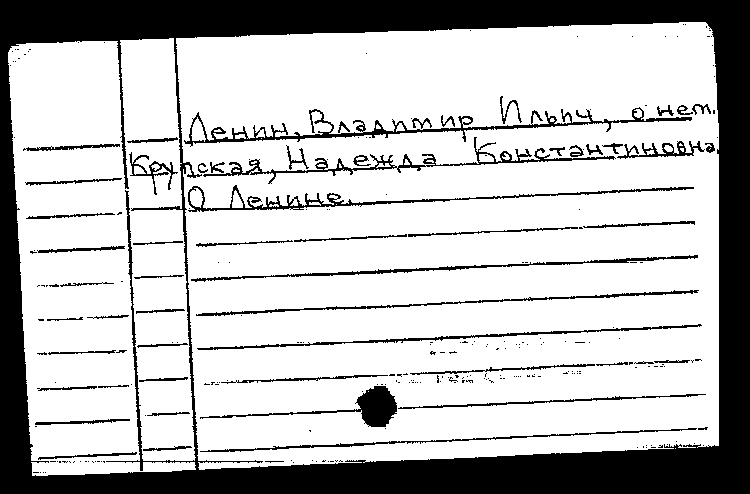 Ленин, Владимир Ильич, о нем.
Крупская, Надежда Константиновна.
О Ленине.